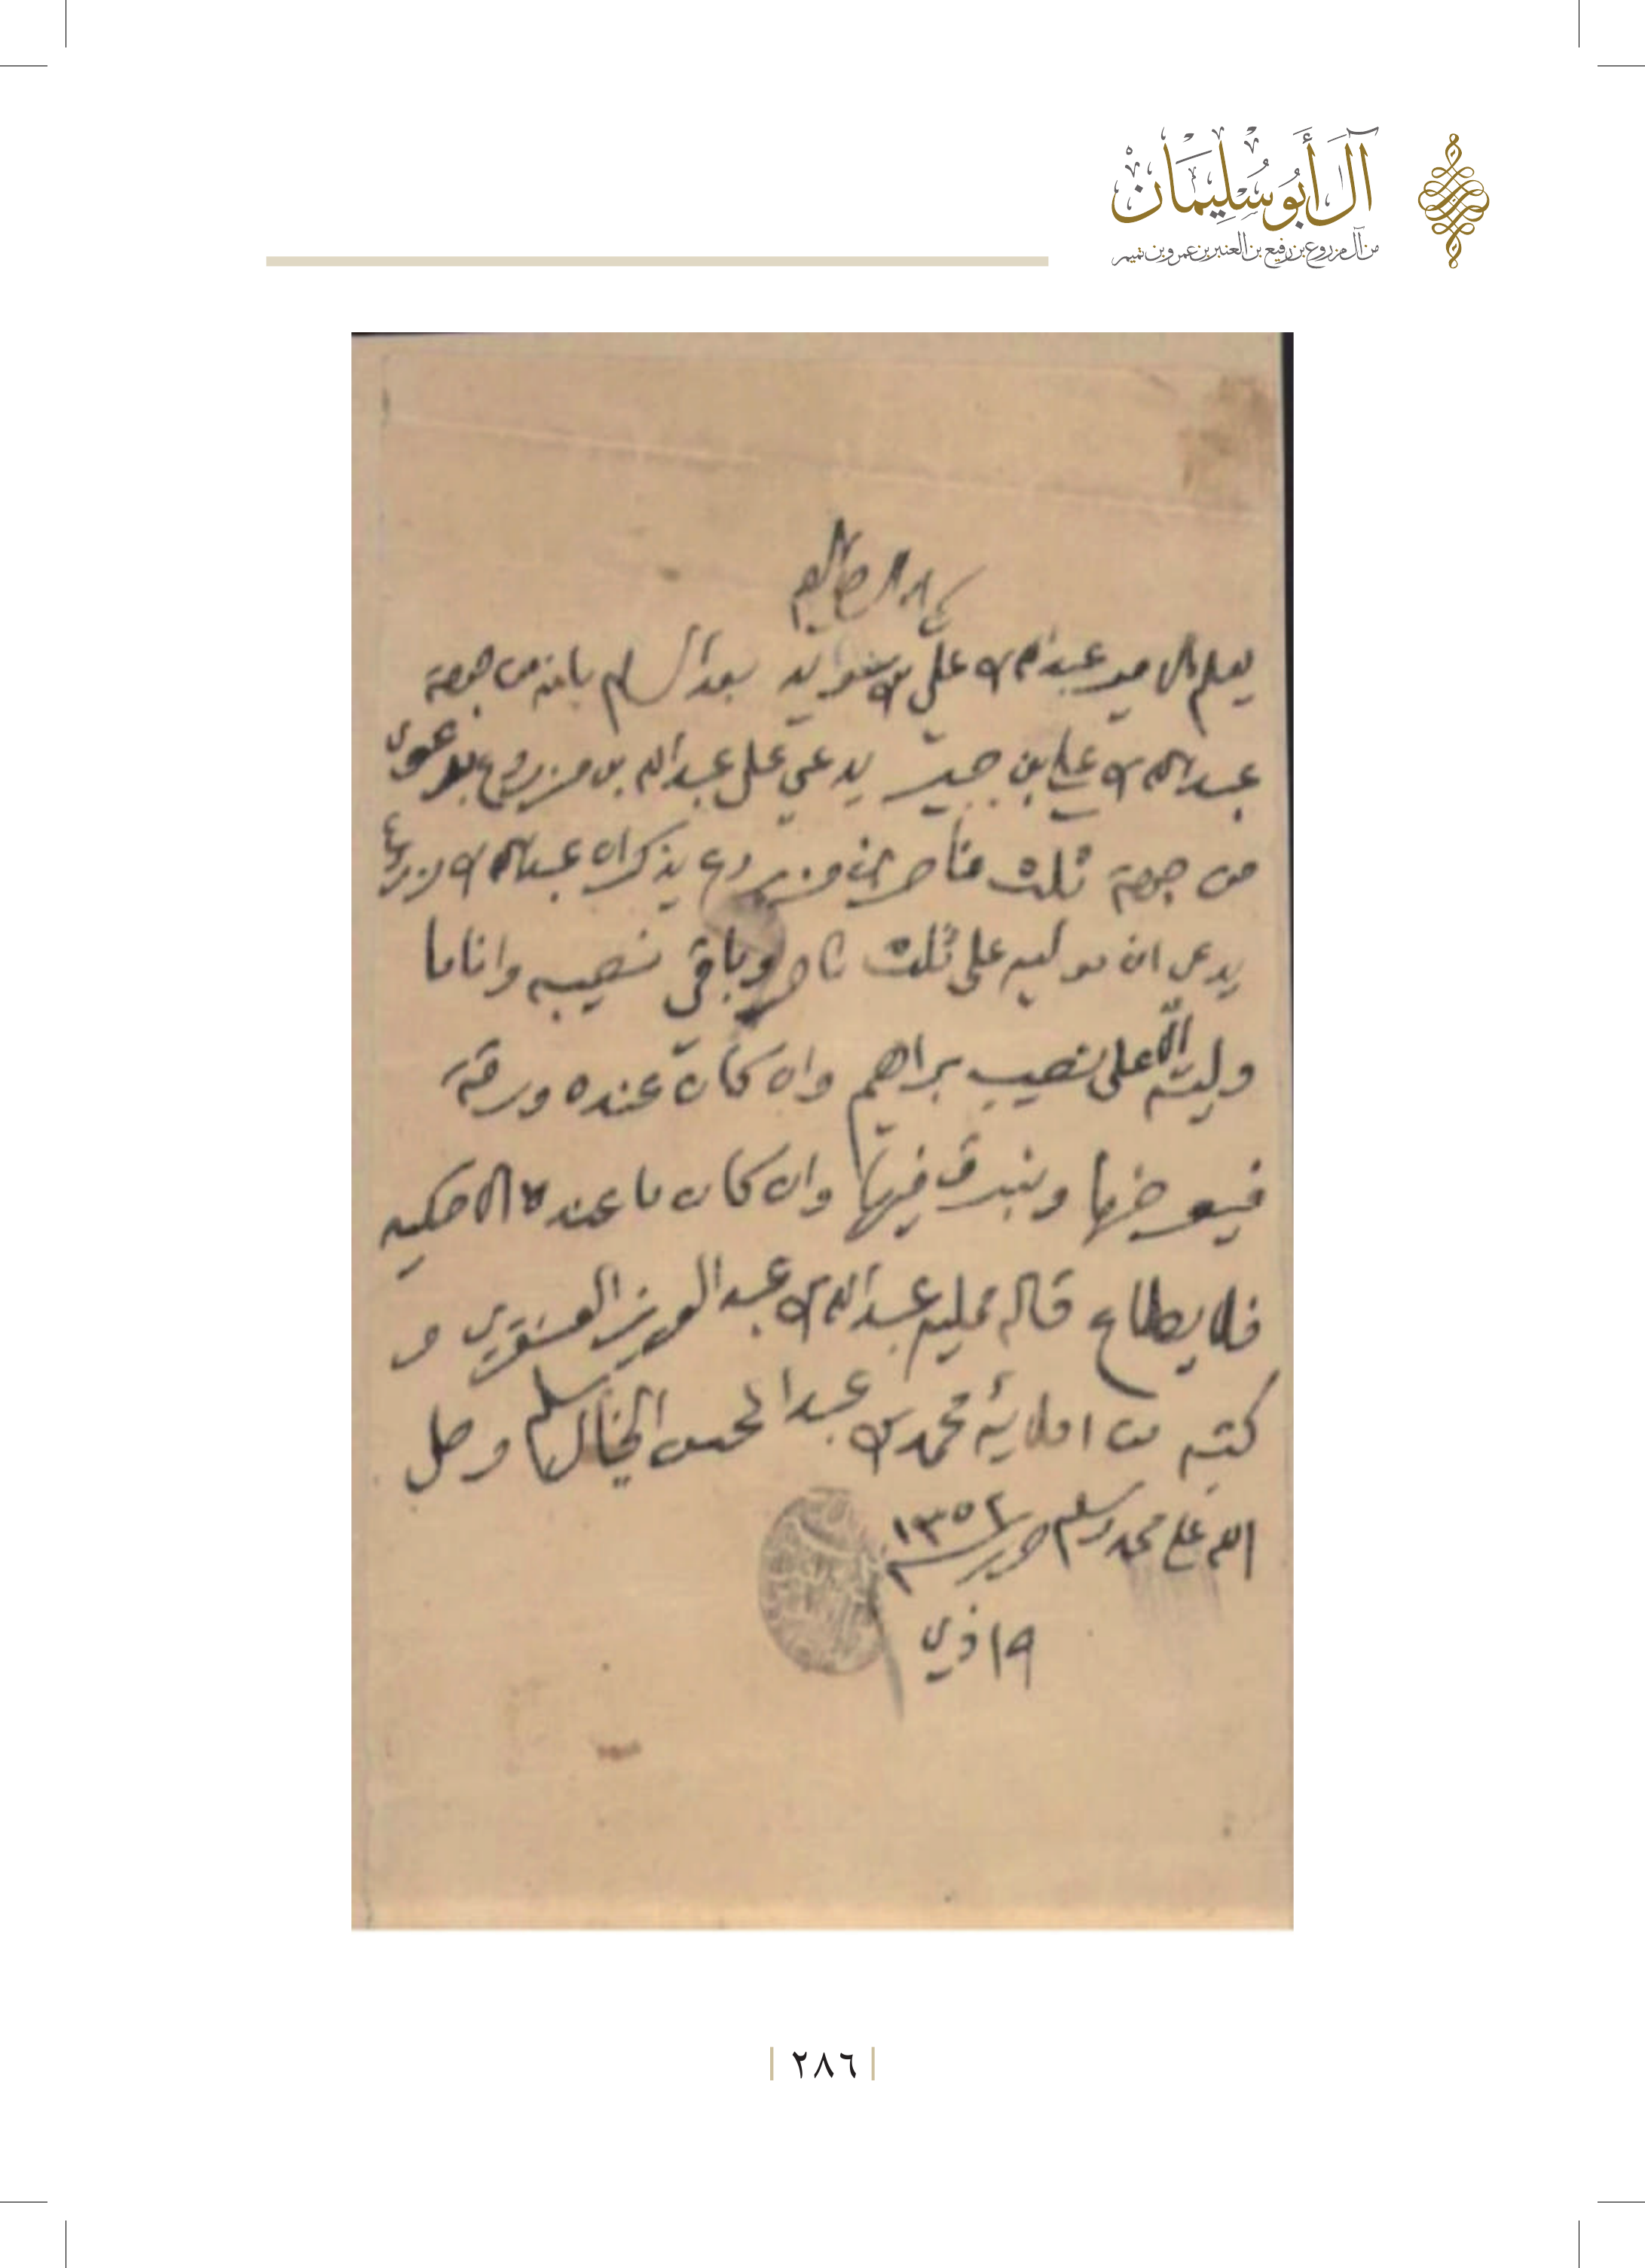 آل أبو سليمان
من آل مزروع بن رفيع بن العنبر بن عمرو بن تميم
يعلم عبدالله علي بن بعد السلام بانه من جهة
عبدالله بن علي بن يدعي على عبدالله بن مزروع بدعوى
من جهة ثلث ناصر بن مزروع يذكر ان عبدالله بن
يدعي ان موليه على ثلث ناصر وباقي نصيبه وانا ما
وليته الا على نصيب براهيم وان كان عنده ورقة
فيعرضها فيها وان كان ما عنده الا حكيه
فلا يطاع قاله ممليه عبدالله بن عبدالعزيز العنقري و
كتبه من املائه محمد بن عبدالمحسن الخيال وصل
الله على محمد وسلم حرر ١٣٥٢
١٩ ذي
٢٨٦